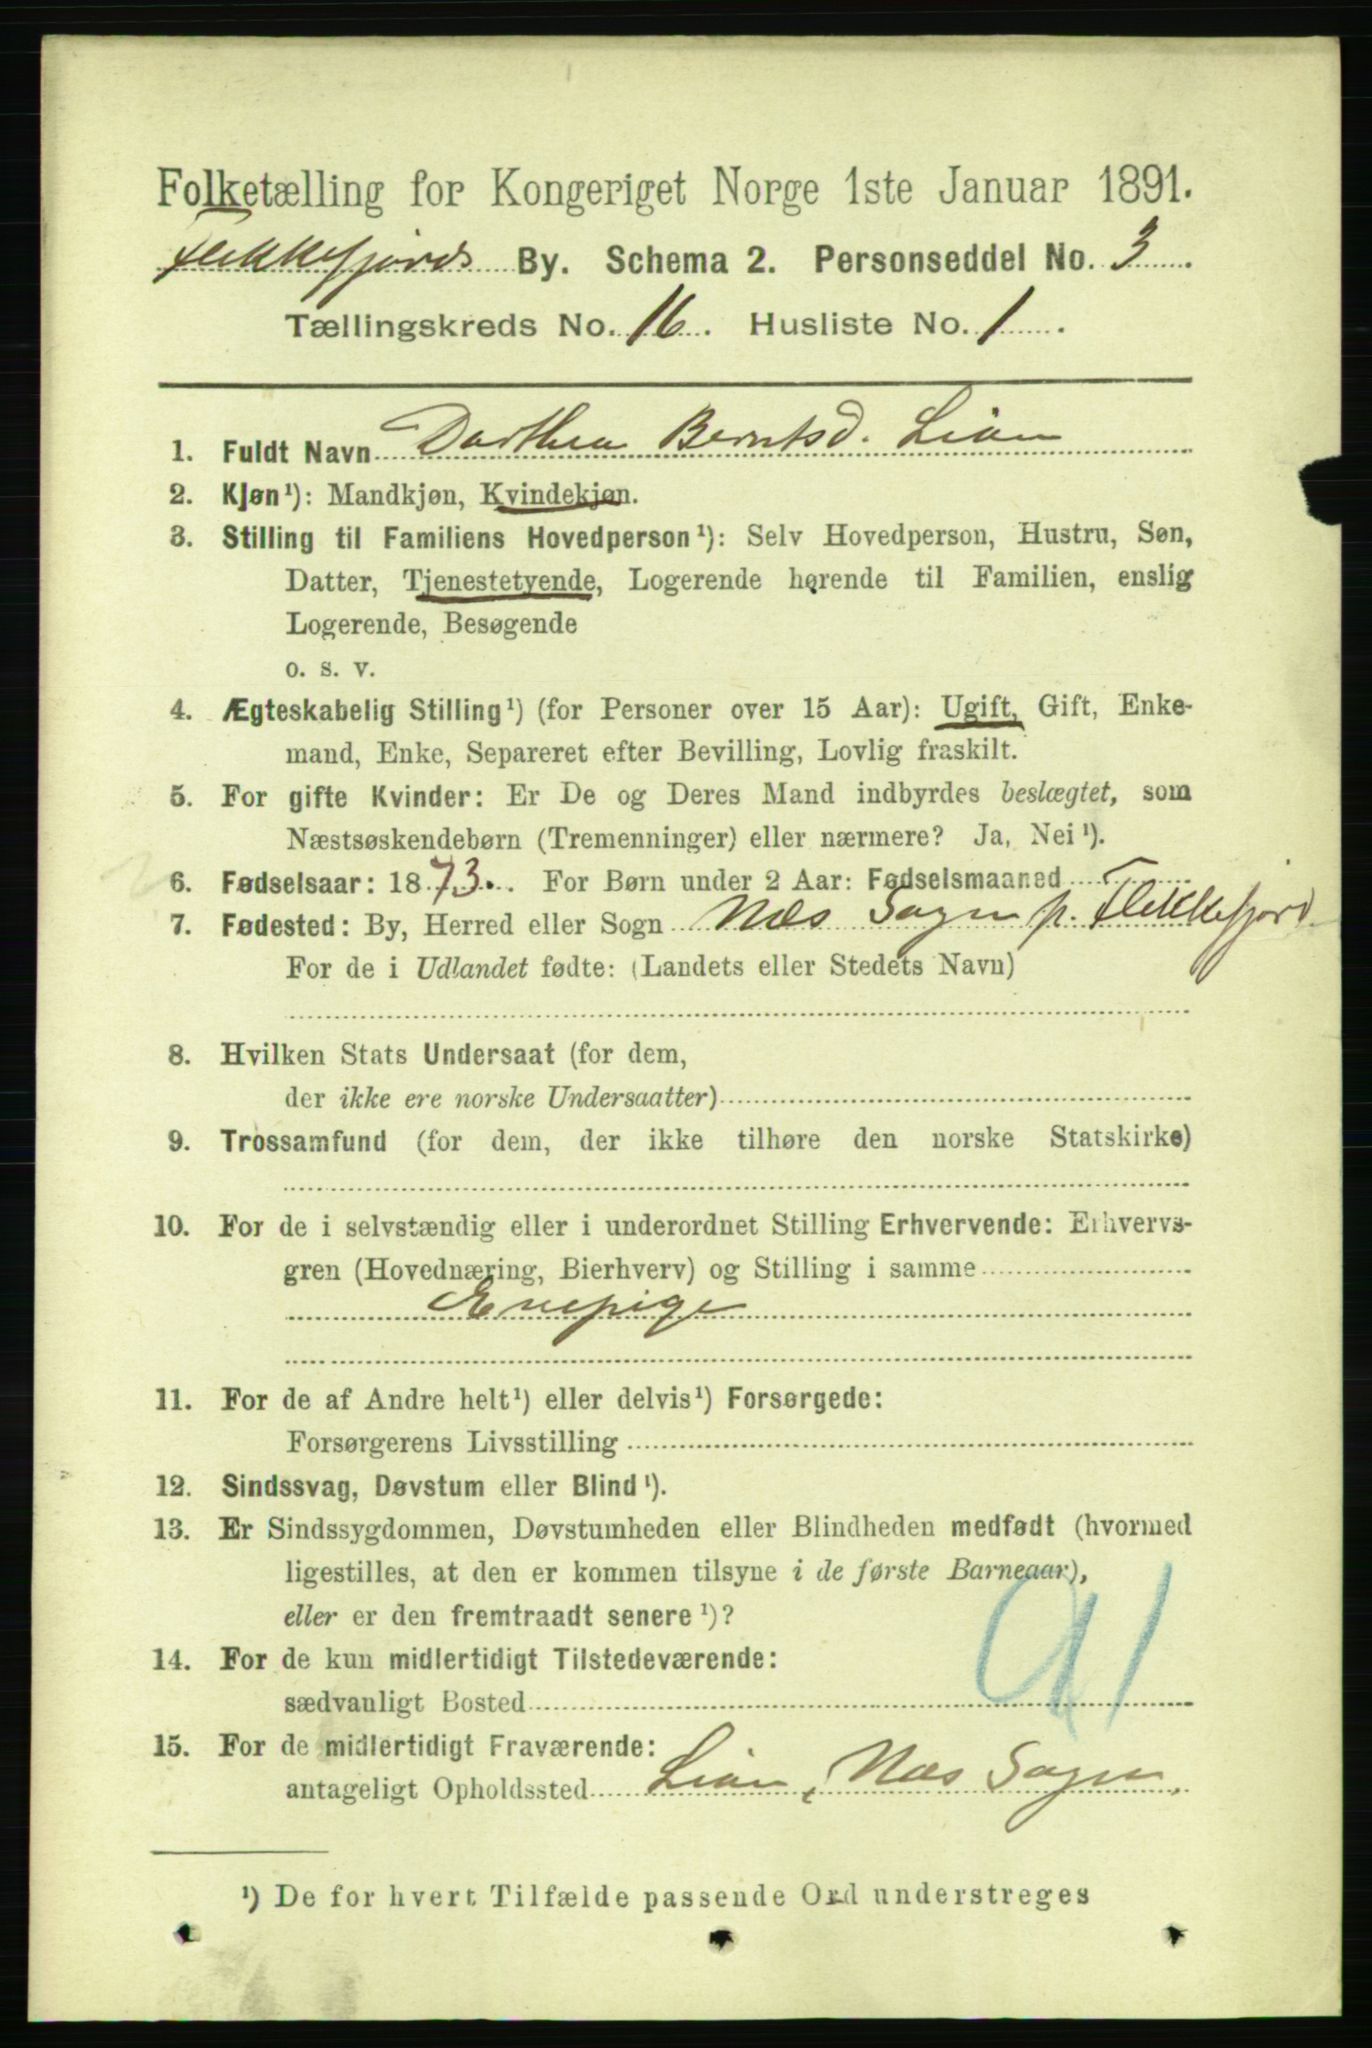 Folketælling for Kongeriget Norge 1ste Januar 1891.
Flekkefjords By. Schema 2. Personseddel No. 3
Tællingskreds No. 16. Husliste No. 1.
1. Fuldt Navn Dorthea Berntsd. Lian
2. Kjøn¹): Mandkjøn, Kvindekjøn.
3. Stilling til Familiens Hovedperson¹): Selv Hovedperson, Hustru, Søn,
Datter, Tjenestetyende, Logerende hørende til Familien, enslig
Logerende, Besøgende
o. s. v.
4. Ægteskabelig Stilling¹) (for Personer over 15 Aar): Ugift, Gift, Enke-
mand, Enke, Separeret efter Bevilling, Lovlig fraskilt.
5. For gifte Kvinder: Er De og Deres Mand indbyrdes beslægtet, som
Næstsøskendebørn (Tremenninger) eller nærmere? Ja, Nei¹).
6. Fødselsaar: 1873. For Børn under 2 Aar: Fødselsmaaned
7. Fødested: By, Herred eller Sogn Næs Sogn p. Flekkefjord
For de i Udlandet fødte: (Landets eller Stedets Navn)
8. Hvilken Stats Undersaat (for dem,
der ikke ere norske Undersaatter)
9. Trossamfund (for dem, der ikke tilhøre den norske Statskirke)
10. For de i selvstændig eller i underordnet Stilling Erhvervende: Erhvervs-
gren (Hovednæring, Bierhverv) og Stilling i samme
Enepige
11. For de af Andre helt¹) eller delvis¹) Forsørgede:
Forsørgerens Livsstilling
12. Sindssvag, Døvstum eller Blind¹).
13. Er Sindssygdommen, Døvstumheden eller Blindheden medfødt (hvormed
ligestilles, at den er kommen tilsyne i de første Barneaar),
eller er den fremtraadt senere¹)?
14. For de kun midlertidigt Tilstedeværende:
sædvanligt Bosted
91
15. For de midlertidigt Fraværende:
antageligt Opholdssted Lian, Næs Sogn.
¹) De for hvert Tilfælde passende Ord understreges